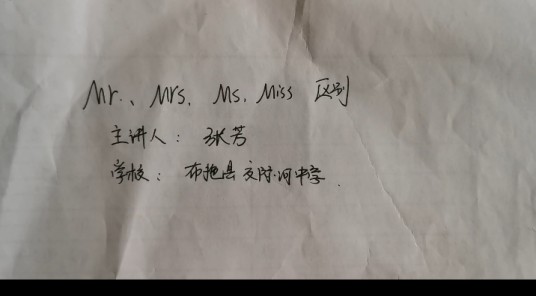 Mr.、Mrs. Ms. Miss 区别
主讲人：张芳
学校：布拖县交际河中学.